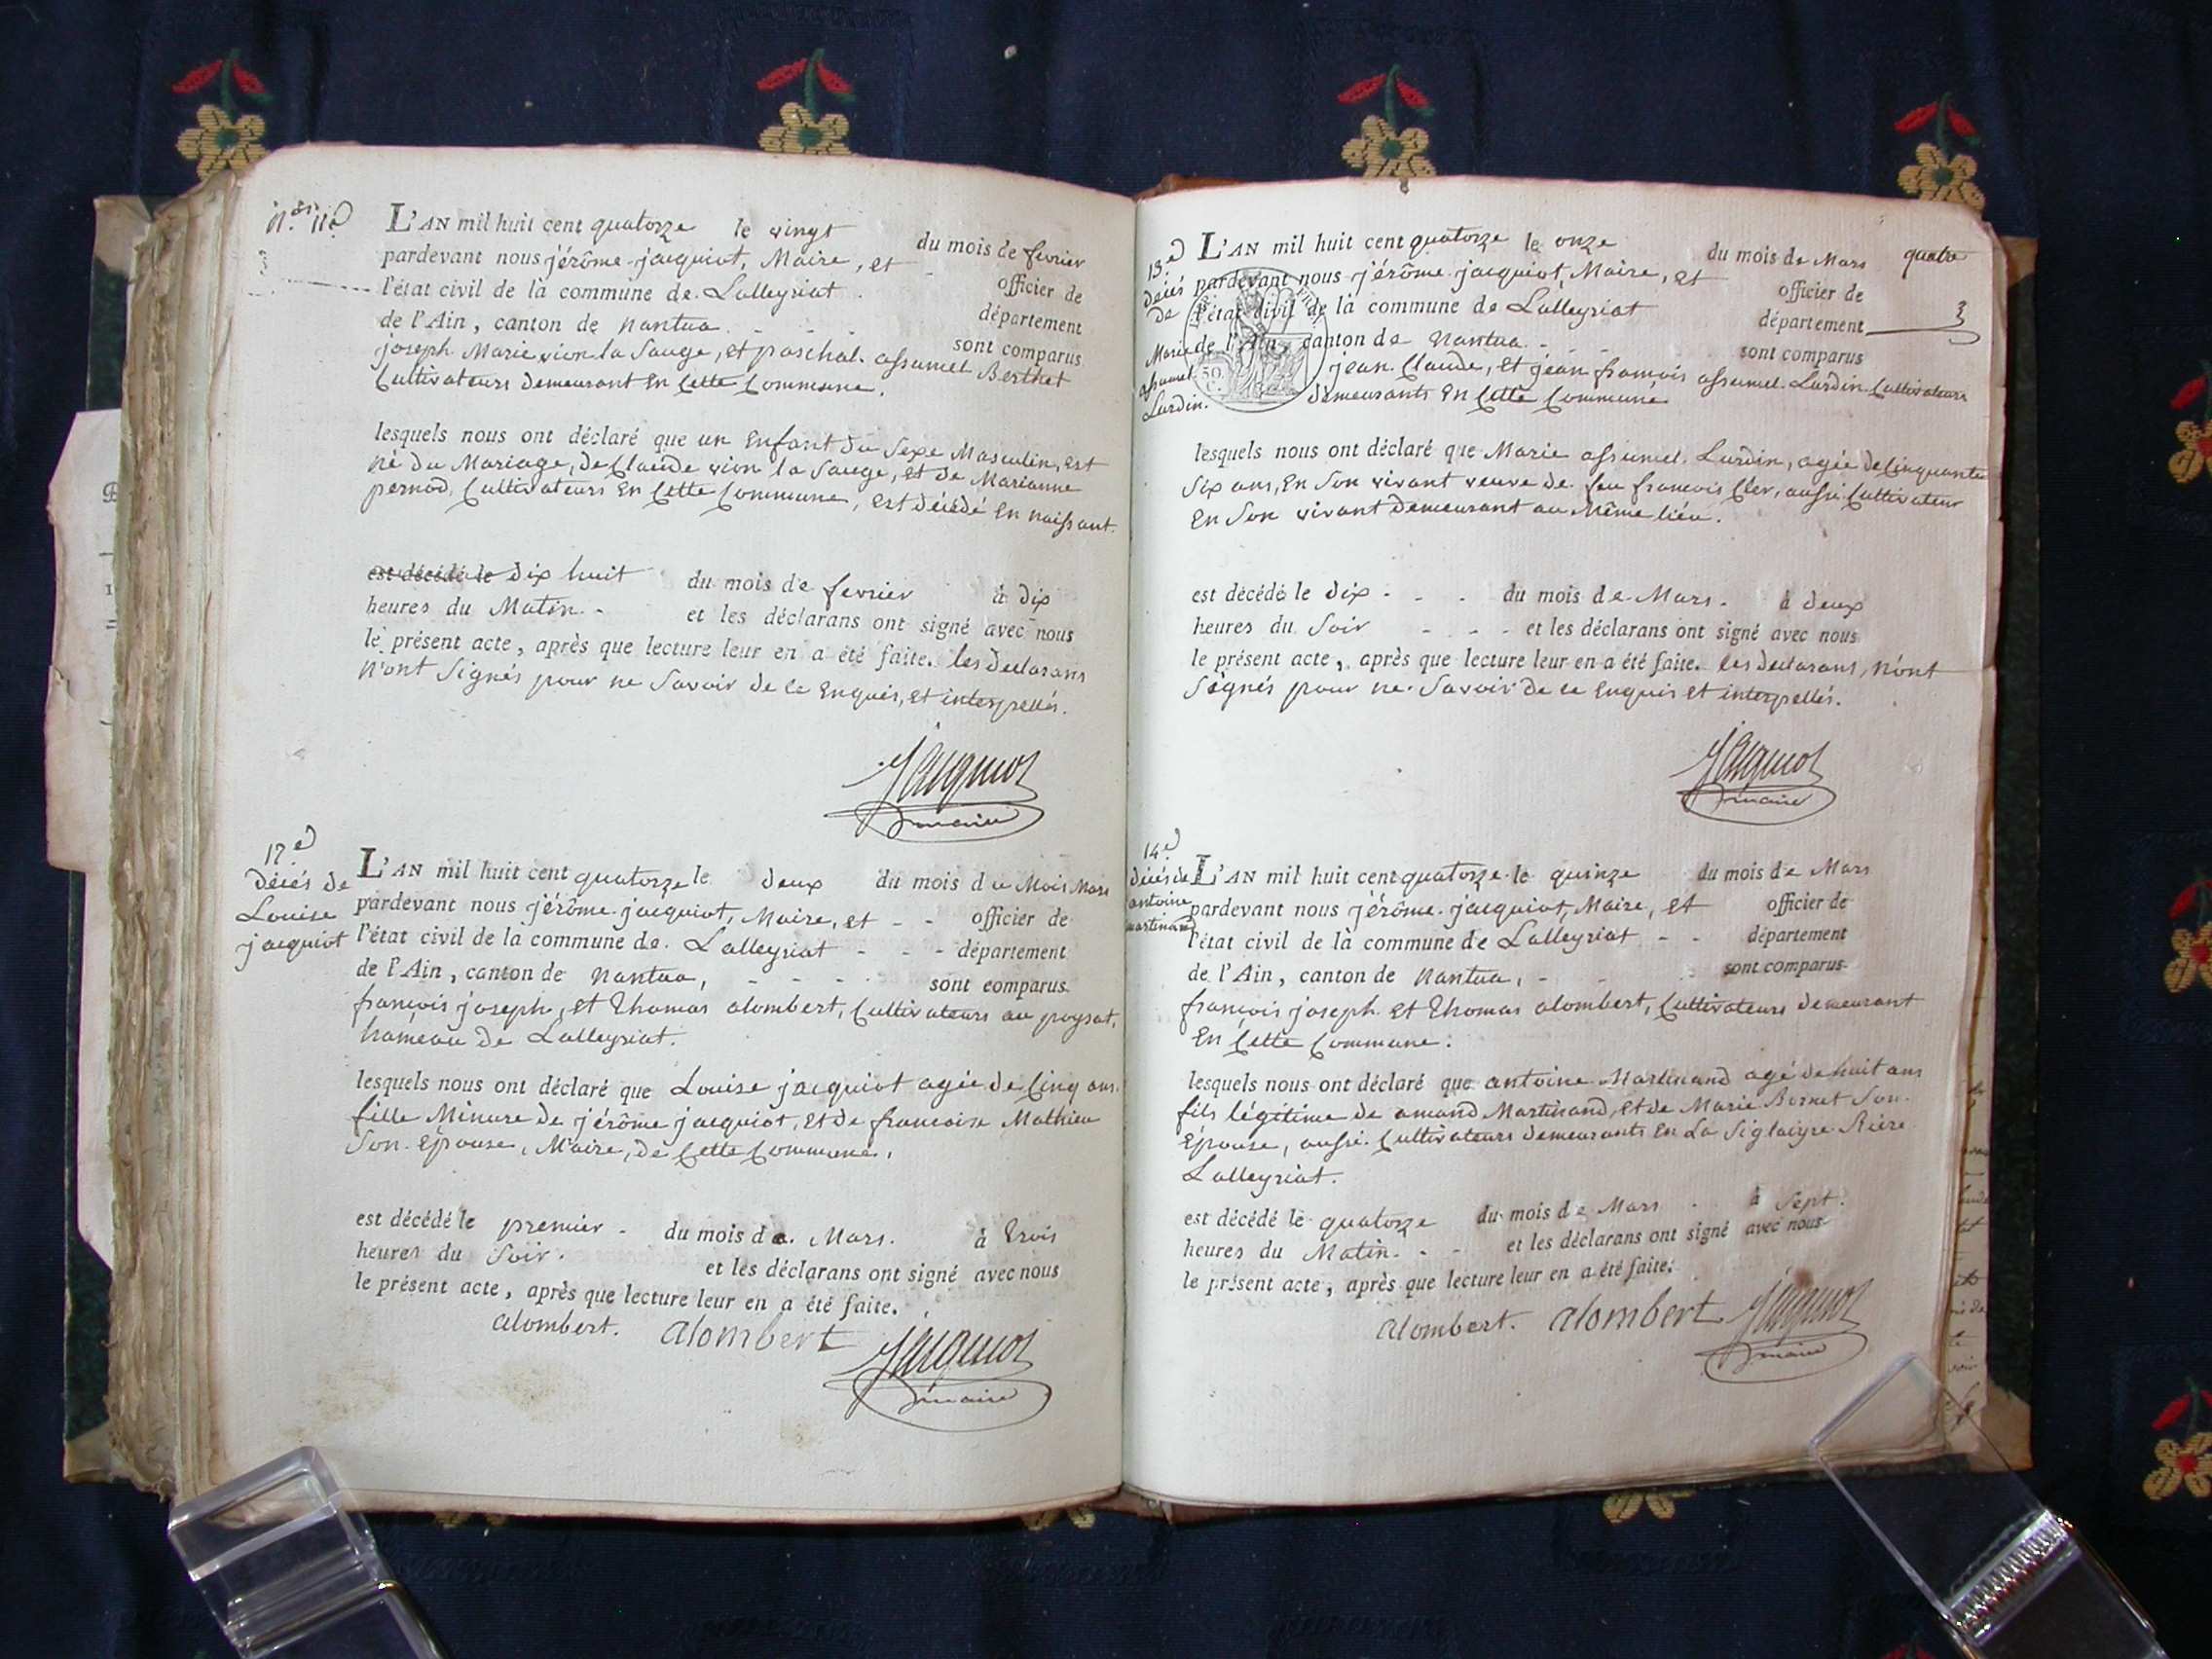 11.e
L'AN mil huit cent quatorze le vingt du mois de fevrier
pardevant nous jérôme jacquiot, Maire, et officier de
l'état civil de la commune de Lalleyriat département
de l'Ain, canton de Nantua sont comparus
joseph Marie vion la Sauge, et paschal assumel Berthet
Cultivateurs demeurant En Cette Commune.
lesquels nous ont déclaré que un Enfant du Sexe Masculin, est
né du Mariage, de Claude vion la Sauge, et de Marianne
pernod, Cultivateurs En Cette Commune, est décédé En naissant.
est décédé le dix huit du mois de fevrier à dix
heures du Matin. et les déclarans ont signé avec nous
le présent acte, après que lecture leur en a été faite. les declarans
n'ont Signés pour ne Savoir de ce Enquis, et interpellés.
Jacquiot
maire
17.e
décés de
Louise
jacquiot
L'AN mil huit cent quatorze le deux du mois du Mois Mars
pardevant nous jérôme jacquiot, Maire, et officier de
l'état civil de la commune de Lalleyriat département
de l'Ain, canton de Nantua, sont comparus
françois joseph, et Thomas alombert, Cultivateurs au poysat,
hameau de Lalleyriat.
lesquels nous ont déclaré que Louise jacquiot agée de Cinq ans.
fille Minure de jérôme jacquiot, et de francoise Mathieu
Son Épouse, Maire, de Cette Commune,
est décédé le premier du mois de Mars. à trois
heures du Soir. et les déclarans ont signé avec nous
le présent acte, après que lecture leur en a été faite.
alombert. alombert Jacquiot
maire
quatre
13.e
décés
de
Marie
assumel
Lurdin.
50.
C.
L'AN mil huit cent quatorze le onze du mois de Mars
pardevant nous jérôme jacquiot, Maire, et officier de
l'état civil de la commune de Lalleyriat département
de l'Ain, canton de Nantua sont comparus
jean Claude, et jean françois assumel Lurdin Cultivateurs
demeurants En Cette Commune
lesquels nous ont déclaré que Marie assumel Lurdin, agée de Cinquante
Six ans, En Son vivant veuve de feu francois Cler, aussi Cultivateur
En Son vivant demeurant au Même liéu.
est décédé le dix du mois de Mars. à deux
heures du Soir et les déclarans ont signé avec nous
le présent acte, après que lecture leur en a été faite. les declarans, n'ont
Signés pour ne Savoir de ce Enquis et interpellés.
Jacquiot
maire
14.e
décés de
antoine
martinand
L'AN mil huit cent quatorze le quinze du mois de Mars
pardevant nous jérôme jacquiot, Maire, et officier de
l'état civil de la commune de Lalleyriat département
de l'Ain, canton de Nantua, sont comparus
françois joseph et Thomas alombert, Cultivateurs demeurant
En Cette Commune.
lesquels nous ont déclaré que antoine Martinand agé de huit ans
fils légitime de amand Martinand, et de Marie Bornet Son
Épouse, aussi Cultivateurs demeurants En La Siglaiyre Riére
Lalleyriat.
est décédé le quatorze du mois de Mars à Sept.
heures du Matin. et les déclarans ont signé avec nous
le présent acte, après que lecture leur en a été faite.
alombert. alombert Jacquiot
maire